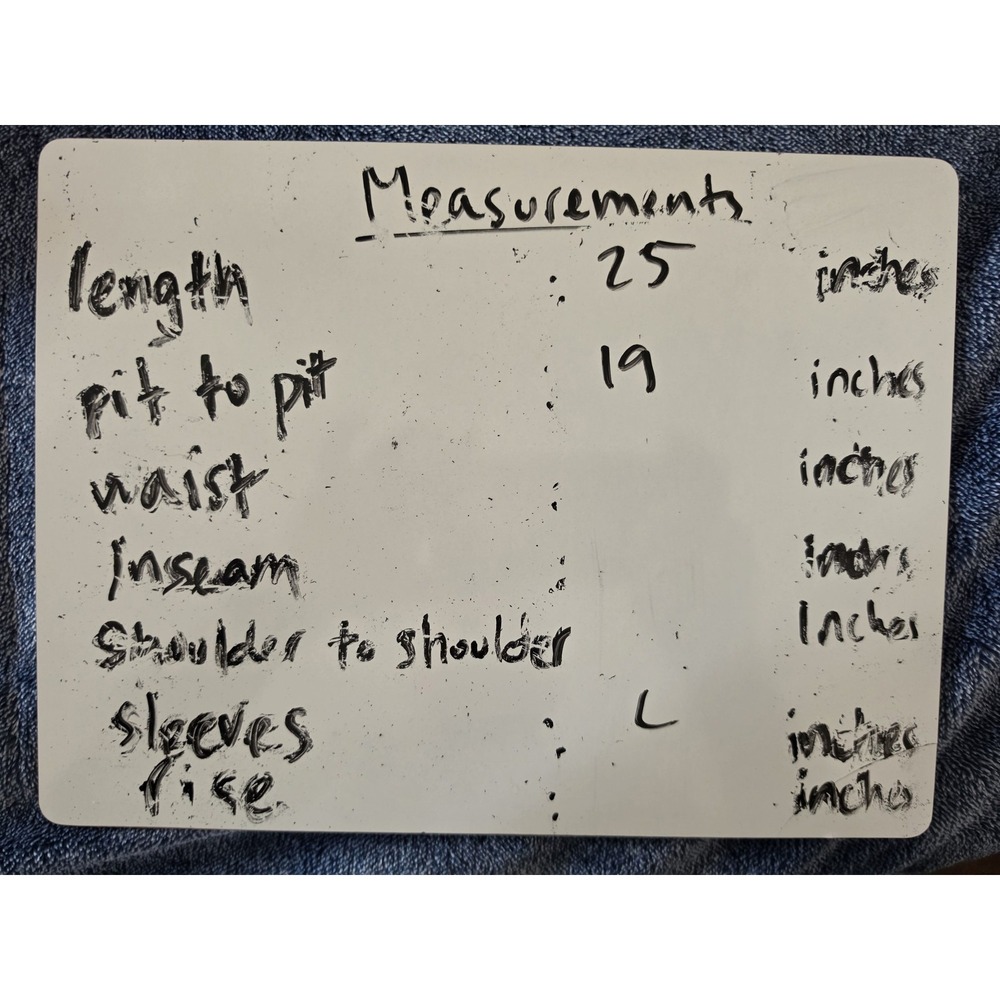 Measurements
length : 25 inches
pit to pit : 19 inches
waist : inches
inseam : inches
shoulder to shoulder inches
sleeves : L inches
rise : inches